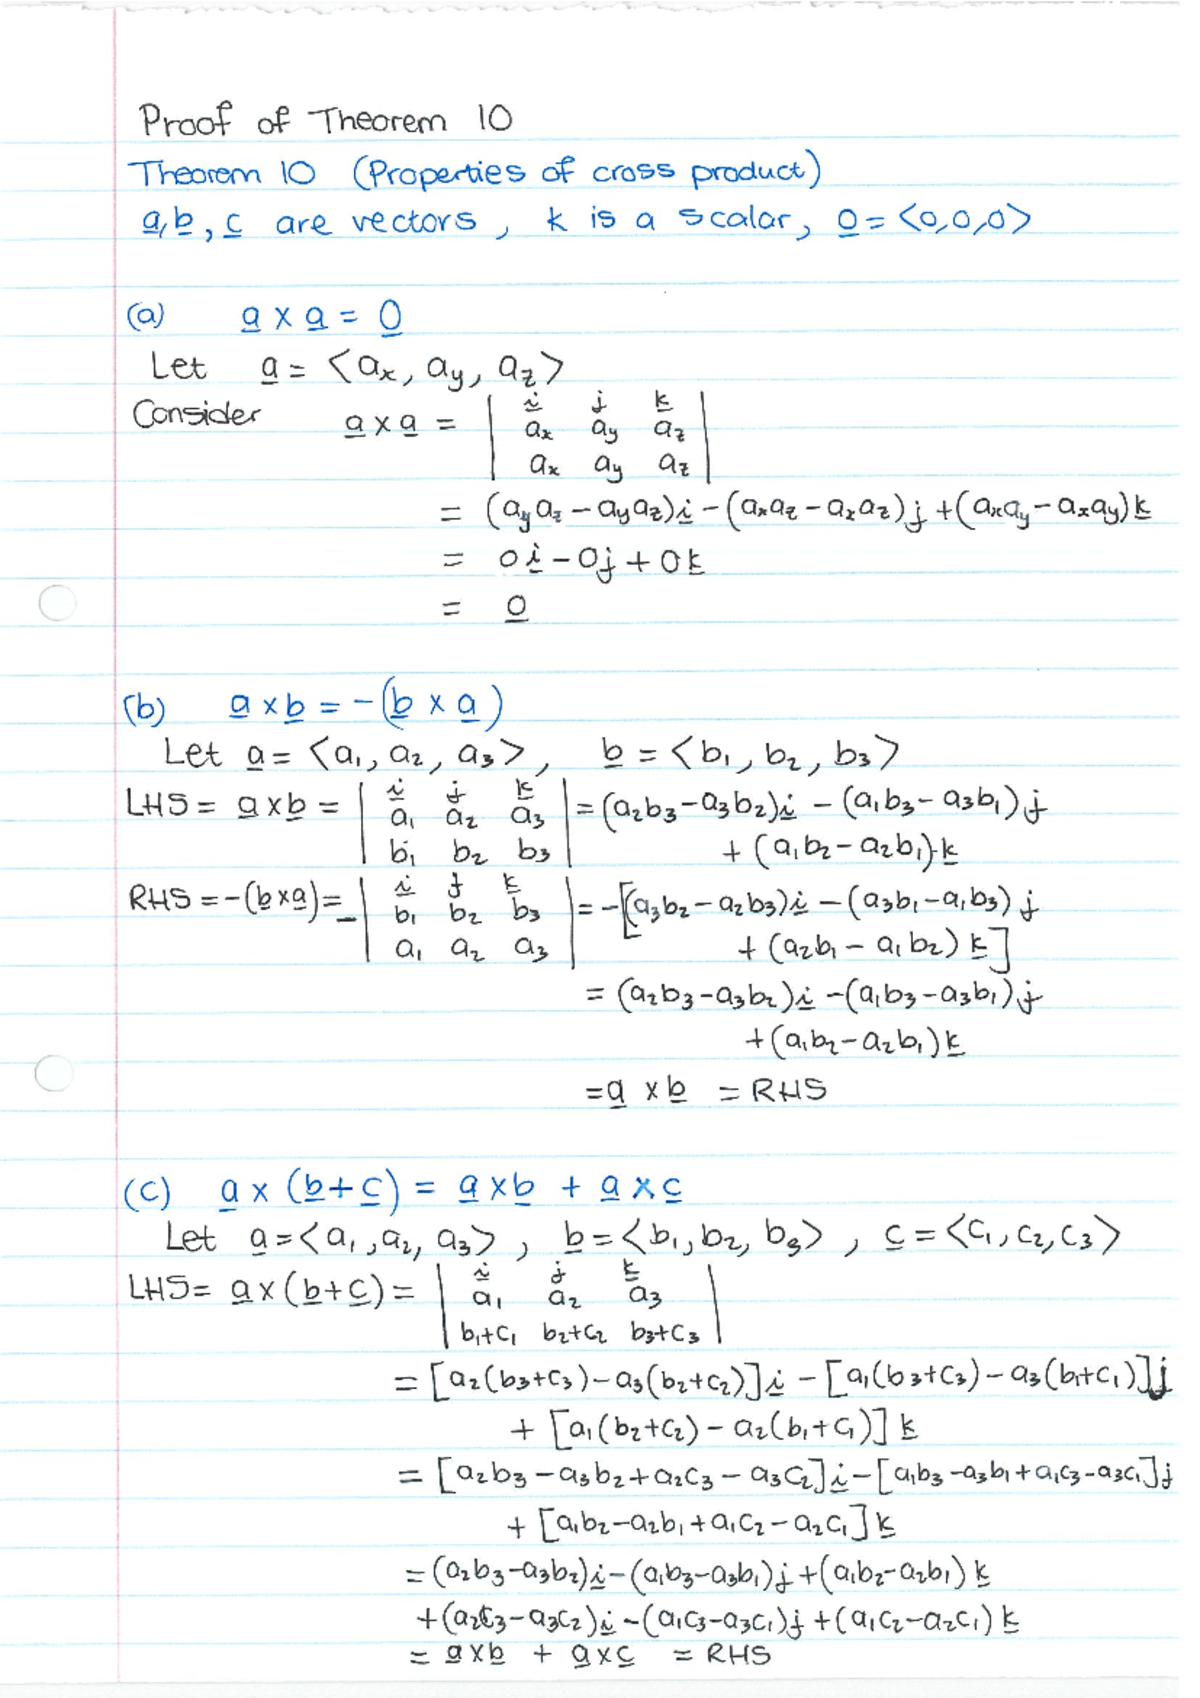 Proof of Theorem 10
Theorem 10 (Properties of cross product)
a, b, c are vectors, k is a scalar, 0 = <0,0,0>
(a) a × a = 0
Let a = <aₓ, a_y, a_z>
Consider a × a = | i j k |
| aₓ a_y a_z |
| aₓ a_y a_z |
= (a_y a_z − a_y a_z)i − (aₓa_z − aₓa_z)j + (aₓa_y − aₓa_y)k
= 0i − 0j + 0k
= 0
(b) a × b = −(b × a)
Let a = <a₁, a₂, a₃>, b = <b₁, b₂, b₃>
LHS = a × b = | i j k |
| a₁ a₂ a₃ | = (a₂b₃ − a₃b₂)i − (a₁b₃ − a₃b₁)j
| b₁ b₂ b₃ | + (a₁b₂ − a₂b₁)k
RHS = −(b × a) = − | i j k |
| b₁ b₂ b₃ | = −[(a₃b₂ − a₂b₃)i − (a₃b₁ − a₁b₃)j
| a₁ a₂ a₃ | + (a₂b₁ − a₁b₂)k]
= (a₂b₃ − a₃b₂)i − (a₁b₃ − a₃b₁)j
+ (a₁b₂ − a₂b₁)k
= a × b = RHS
(c) a × (b + c) = a × b + a × c
Let a = <a₁, a₂, a₃>, b = <b₁, b₂, b₃>, c = <c₁, c₂, c₃>
LHS = a × (b + c) = | i j k |
| a₁ a₂ a₃ |
| b₁+c₁ b₂+c₂ b₃+c₃ |
= [a₂(b₃+c₃) − a₃(b₂+c₂)]i − [a₁(b₃+c₃) − a₃(b₁+c₁)]j
+ [a₁(b₂+c₂) − a₂(b₁+c₁)]k
= [a₂b₃ − a₃b₂ + a₂c₃ − a₃c₂]i − [a₁b₃ − a₃b₁ + a₁c₃ − a₃c₁]j
+ [a₁b₂ − a₂b₁ + a₁c₂ − a₂c₁]k
= (a₂b₃ − a₃b₂)i − (a₁b₃ − a₃b₁)j + (a₁b₂ − a₂b₁)k
+ (a₂c₃ − a₃c₂)i − (a₁c₃ − a₃c₁)j + (a₁c₂ − a₂c₁)k
= a × b + a × c = RHS